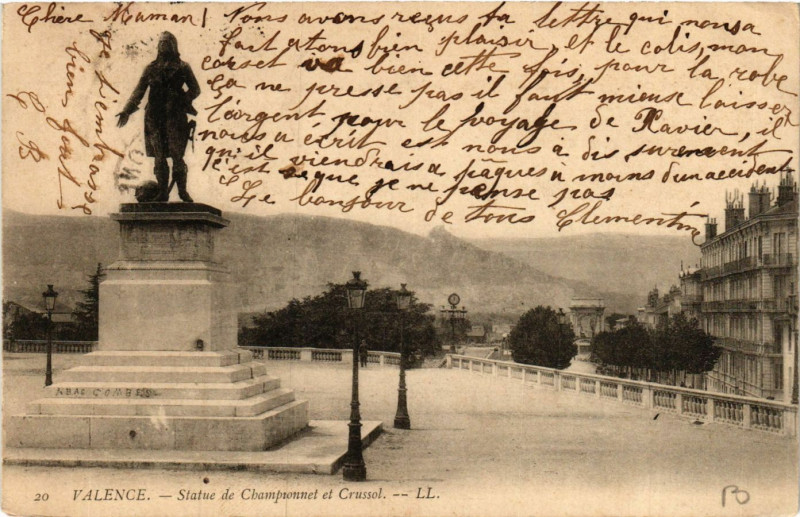 Chère Maman! Nous avons reçus ta lettre qui nous a
fait a tous bien plaisir, et le colis, mon
corset va bien cette fois, pour la robe
ça ne presse pas il faut mieux laisser
l'argent pour le voyage de Xavier, il
nous a écrit est nous a dis surement
qu'il viendrais a pâques a moins d'un accident
c'est se que je ne pense pas
Le bonjour de tous Clementine
je t'embrasse
bien fort
C B
20 VALENCE. — Statue de Championnet et Crussol. -- LL.